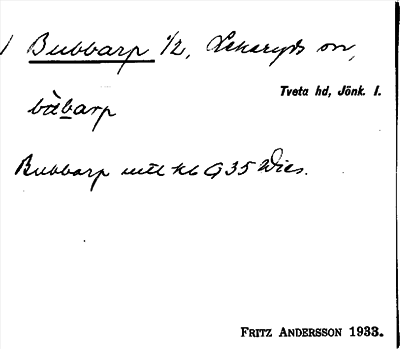 Bubbarp 1/2, Lekeryds sn,
Tveta hd, Jönk. l.
bùbarp
Bubbarp utl kb G 35 Dies.
FRITZ ANDERSSON 1933.